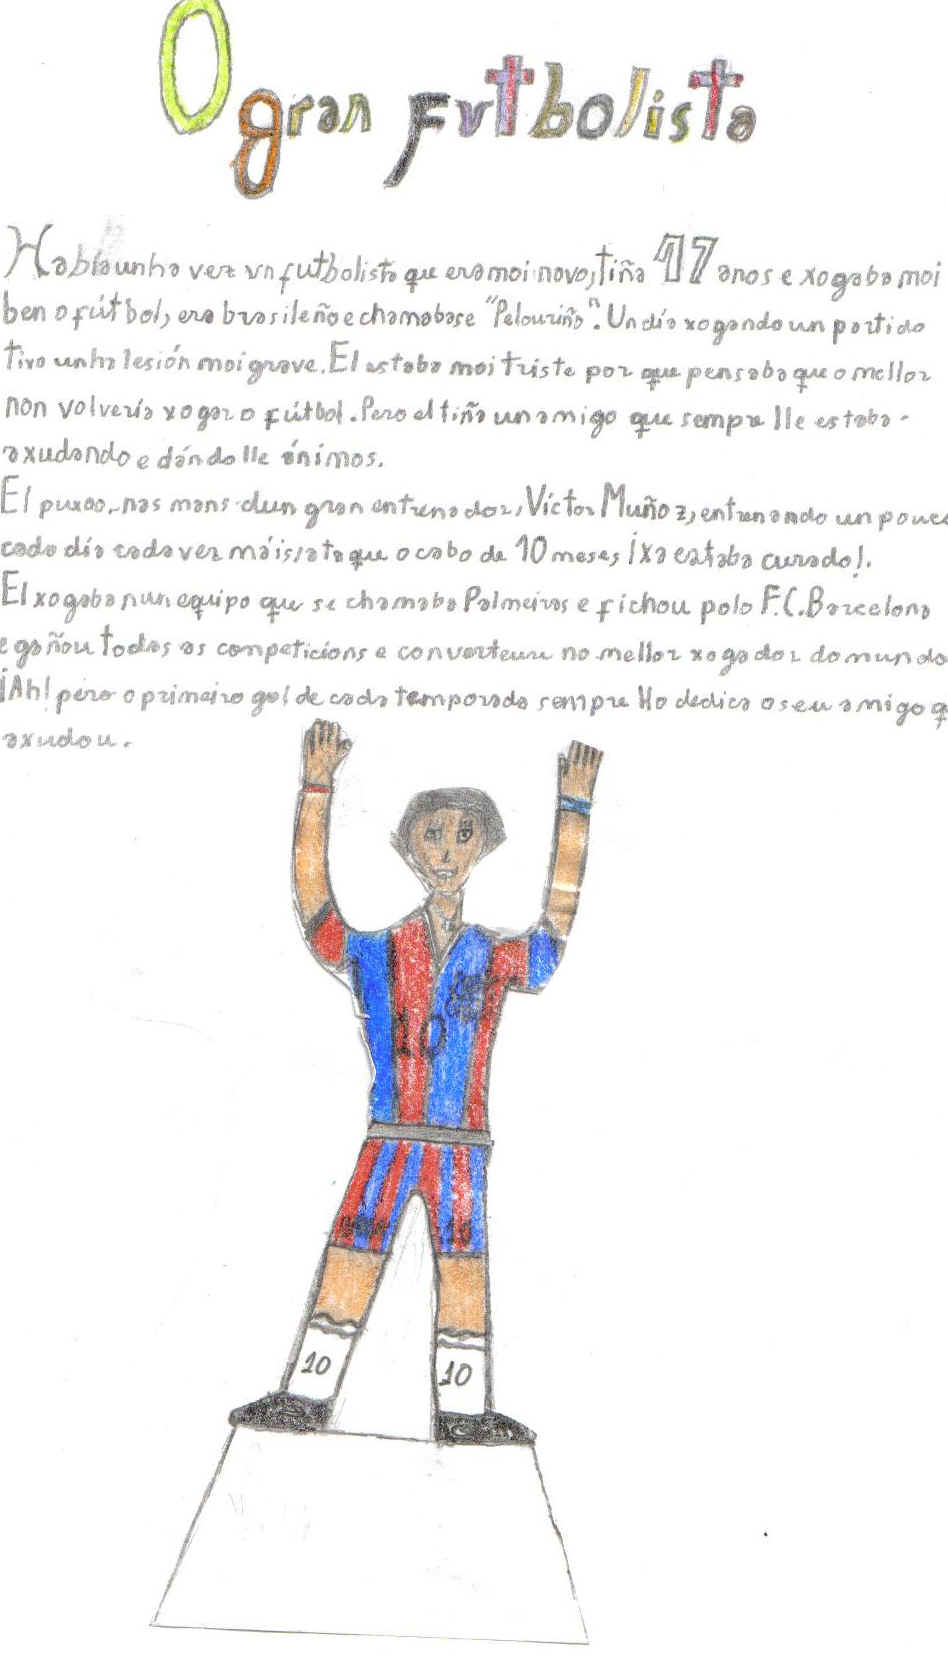 O gran futbolista
Había unha vez un futbolista que era moi novo, tiña 17 anos e xogaba moi
ben o fútbol, era brasileño e chamabase "Pelouriño". Un día xogando un partido
tivo unha lesión moi grave. El estaba moi triste por que pensaba que o mellor
non volvería xogar o fútbol. Pero el tiña un amigo que sempre lle estaba
axudando e dándolle ánimos.
El puxoo nas mans dun gran entrenador, Víctor Muñoz, entrenando un pouco
cada día cada vez máis, ata que o cabo de 10 meses ¡xa estaba curado!.
El xogaba nun equipo que se chamaba Palmeiras e fichou polo F.C. Barcelona
e gañou todas as competicións e converteuse no mellor xogador do mundo
¡Ah! pero o primeiro gol de cada temporada sempre llo dedica o seu amigo q
axudou.
10
10 10